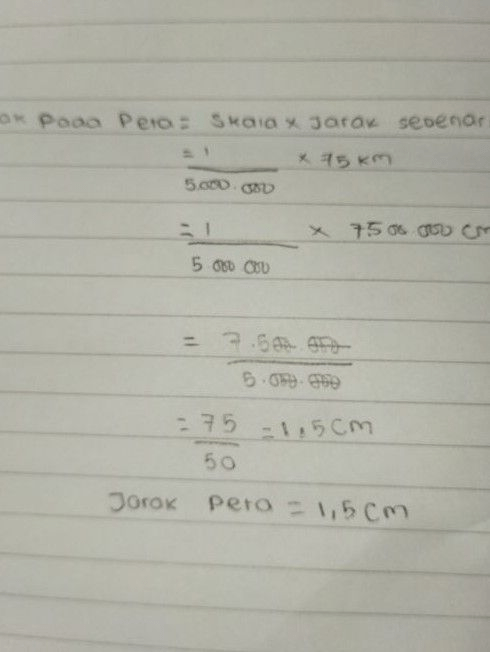 ak Pada Peta = Skala x Jarak sebenar
= 1 / 5.000.000 x 75 km
= 1 / 5 000 000 x 7500.000 cm
= 7.500.000 / 5.000.000
= 75 / 50 = 1,5 cm
Jarak peta = 1,5 cm